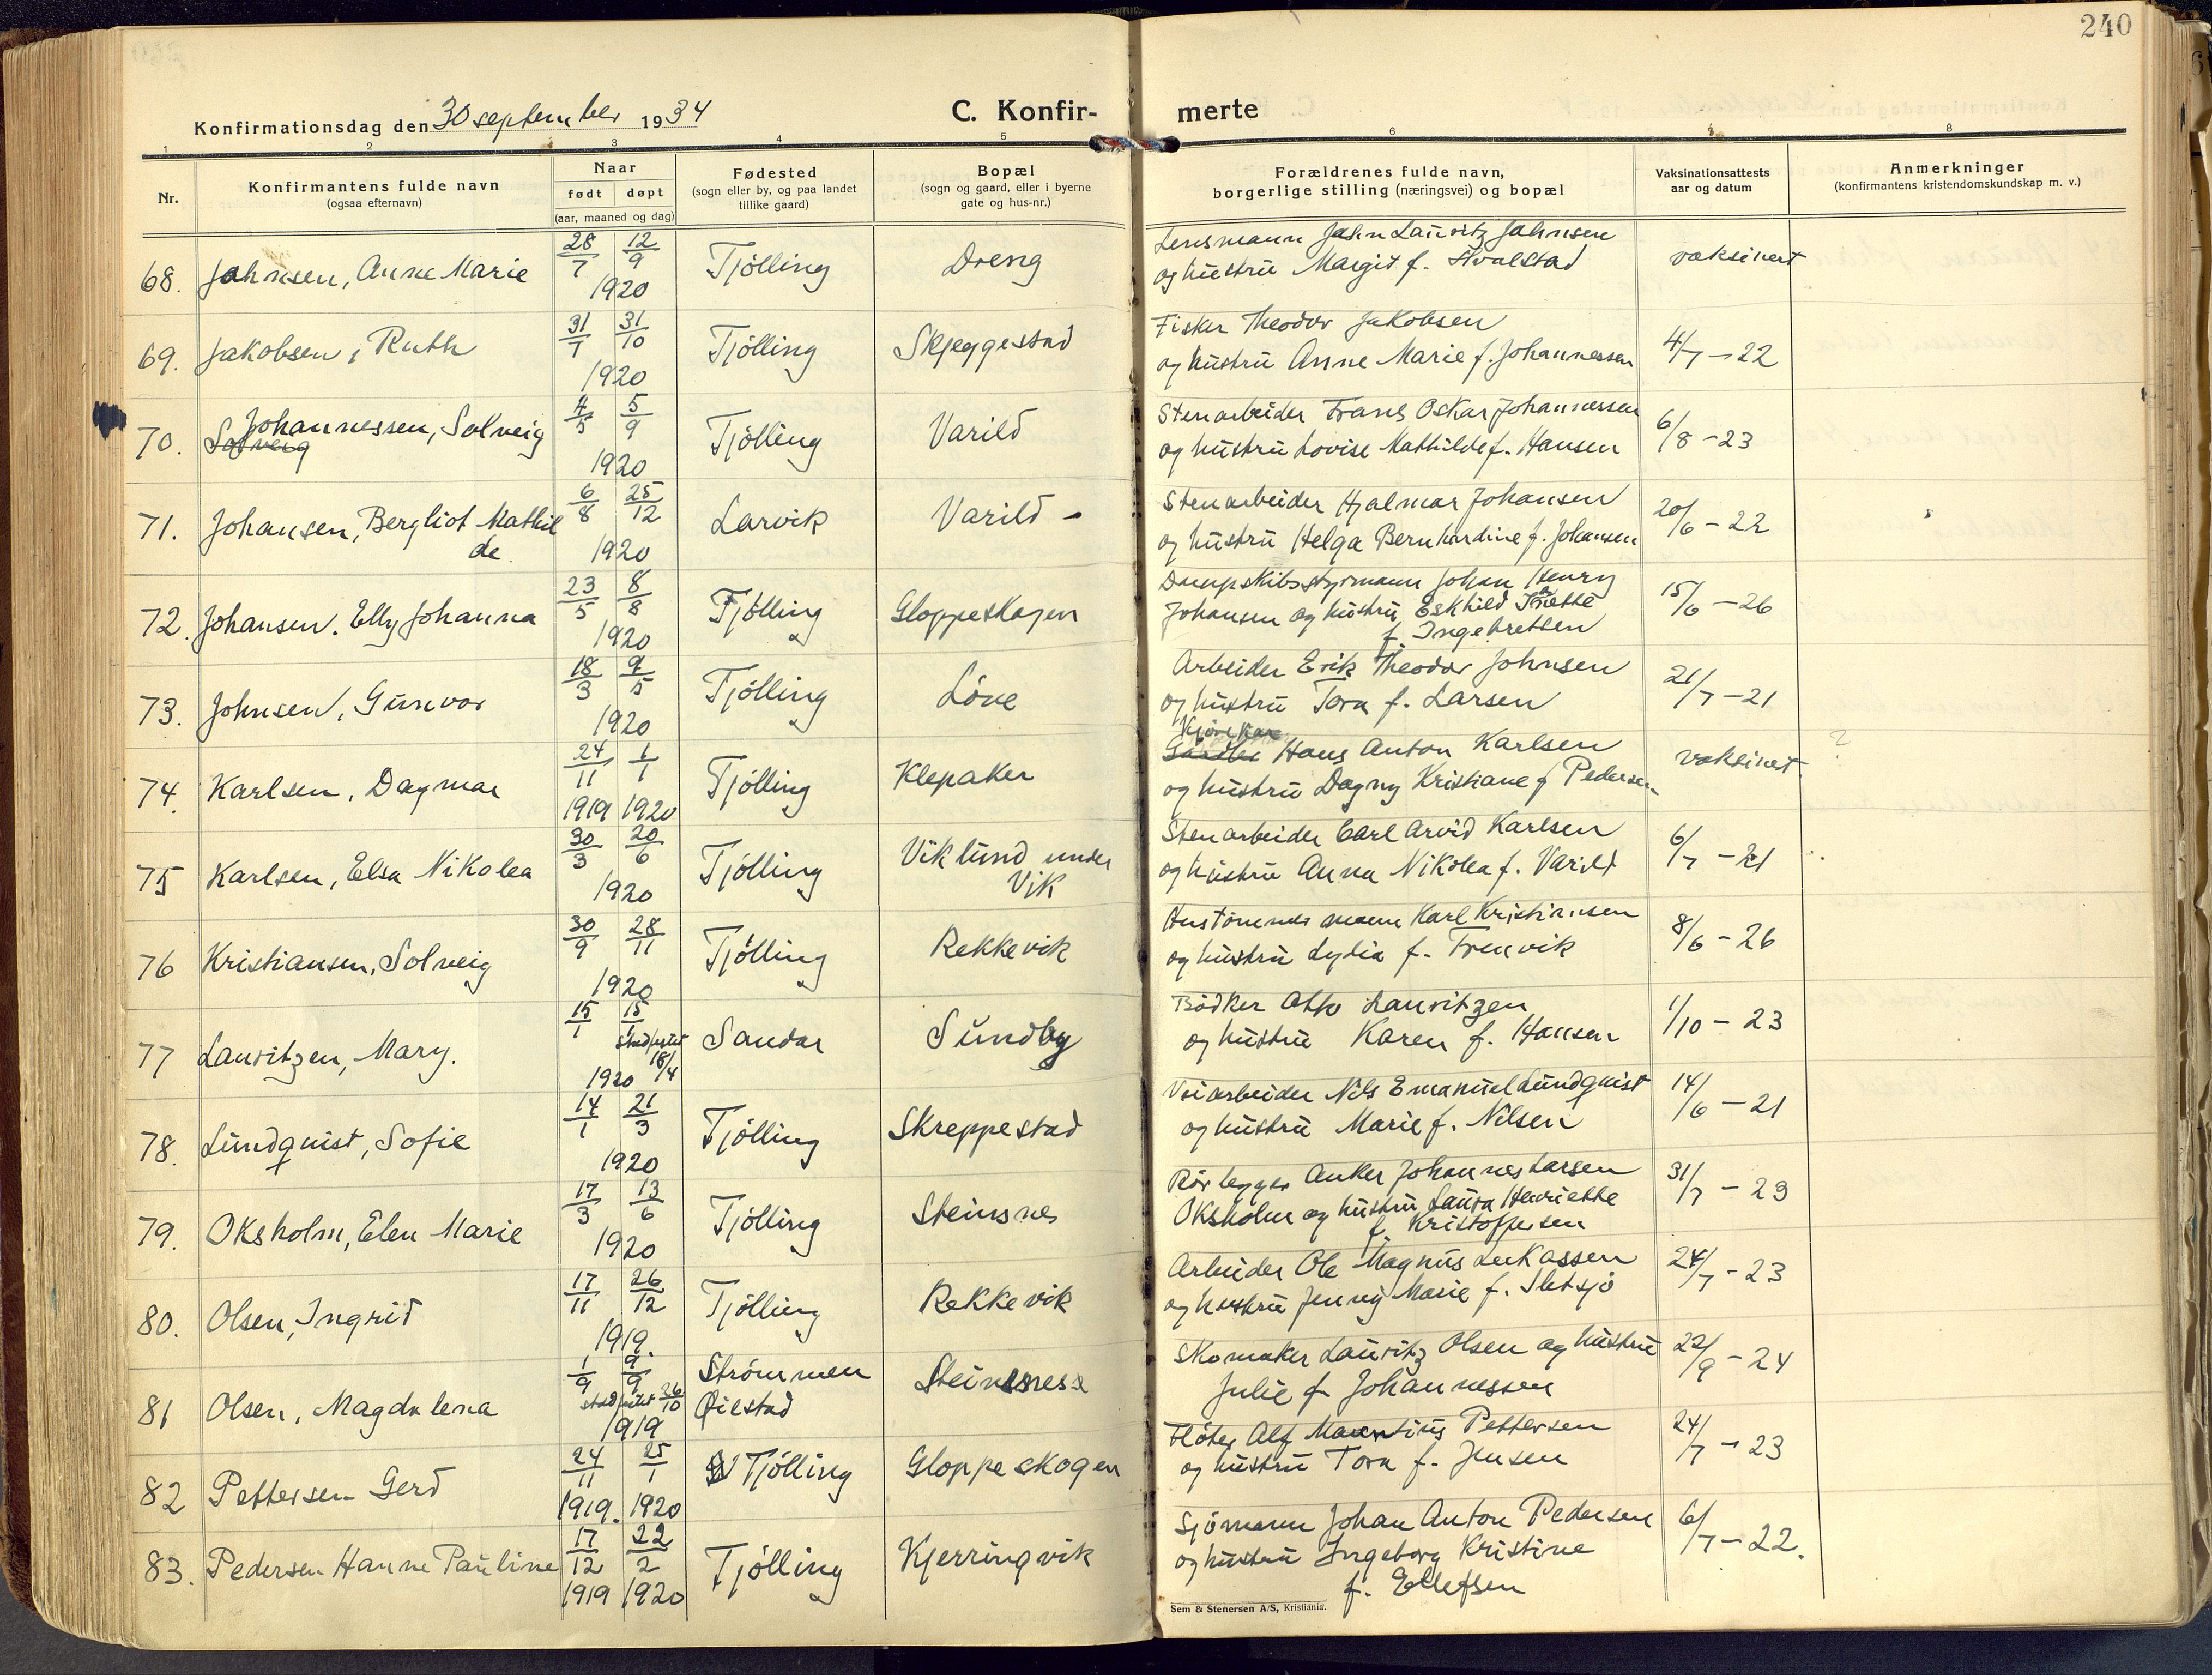 240
Konfirmationsdag den 30 september 1934
C. Konfir-
merte
1 2 3 4 5 6 7 8
Nr.
Konfirmantens fulde navn
(ogsaa efternavn)
Naar
født døpt
(aar, maaned og dag)
Fødested
(sogn eller by, og paa landet
tillike gaard)
Bopæl
(sogn og gaard, eller i byerne
gate og hus-nr.)
Forældrenes fulde navn,
borgerlige stilling (næringsvei) og bopæl
Vaksinationsattests
aar og datum
Anmerkninger
(konfirmantens kristendomskundskap m. v.)
68. Jahnsen, Anne Marie 28/7 12/9 1920 Tjölling Dreng
Lensmann Jahn Lauritz Jahnsen
og hustru Margit f. Hvalstad
vaksinert
69. Jakobsen, Ruth 31/7 31/10 1920 Tjölling Skjeggestad
Fisker Theodor Jakobsen
og hustru Anne Marie f. Johannessen
4/7-22
70. Johannessen, Solveig
Solveig
4/5 5/9 1920 Tjölling Varild
Stenarbeider Frans Oskar Johannessen
og hustru Lovise Mathilde f. Hansen
6/8-23
71. Johansen, Bergliot Mathil
de
6/8 25/12 1920 Larvik Varild -
Stenarbeider Hjalmar Johansen
og hustru Helga Bernhardine f. Johansen
20/6-22
72. Johansen, Elly Johanna 23/5 8/8 1920 Tjölling Gloppeskogen
Dampskibsstyrmann Johan Henry
Johansen og hustru Eskhild
f. Ingebretsen
15/6-26
73. Johnsen, Gunvor 18/3 9/5 1920 Tjölling Löve
Arbeider Erik Theodor Johnsen
og hustru Tora f. Larsen
21/7-21
74. Karlsen, Dagmar 24/11 1/1 1919 1920 Tjölling Klepaker
Hans Anton Karlsen
og hustru Dagny Kristiane f Pedersen
vaksinert
?
75 Karlsen, Elsa Nikolea 30/3 20/6 1920 Tjölling Viklund under
Vik
Stenarbeider Carl Arvid Karlsen
og hustru Anna Nikolea f. Varild
6/7-21
76 Kristiansen, Solveig 30/9 28/11 1920 Tjölling Rekkevik
mann Karl Kristiansen
og hustru Lydia f. Trenvik
8/6-26
77 Lauritzen, Mary. 15/1 15/1 stadfestet 18/4 1920 Sandar Sundby
Bödker Otto Lauritzen
og hustru Karen f. Hansen
1/10-23
78. Lundquist, Sofie 14/1 21/3 1920 Tjölling Skreppestad
Veiarbeider Nils Emanuel Lundquist
og hustru Marie f. Nilsen
14/6-21
79. Oksholm, Elen Marie 17/3 13/6 1920 Tjölling Steinsnes
Rörlegger Anker Johannes Larsen
Oksholm og hustru Laura Henriette
f. Kristoffersen
31/7-23
80. Olsen, Ingrid 17/11 26/12 1919. Tjölling Rekkevik
Arbeider Ole Magnus Lukassen
og hustru Jenny Marie f. Sletsjö
24/7-23
81 Olsen, Magdalena 1/9 9/9 stadfestet 26/10 1919 Strömmen
Øiestad
Steinsnes
Skomaker Lauritz Olsen og hustru
Julie f. Johannessen
22/9-24
82 Pettersen Gerd 24/11 25/1 1919. 1920 Tjölling Gloppeskogen
Fløter Alf Pettersen
og hustru Tora f. Jensen
24/7-23
83. Pedersen Hanne Pauline 17/12 22/2 1919 1920 Tjölling Kjerringvik
Sjömann Johan Anton Pedersen
og hustru Ingeborg Kristine
f. Ellefsen
6/7-22.
Sem & Stenersen A/S, Kristiania.